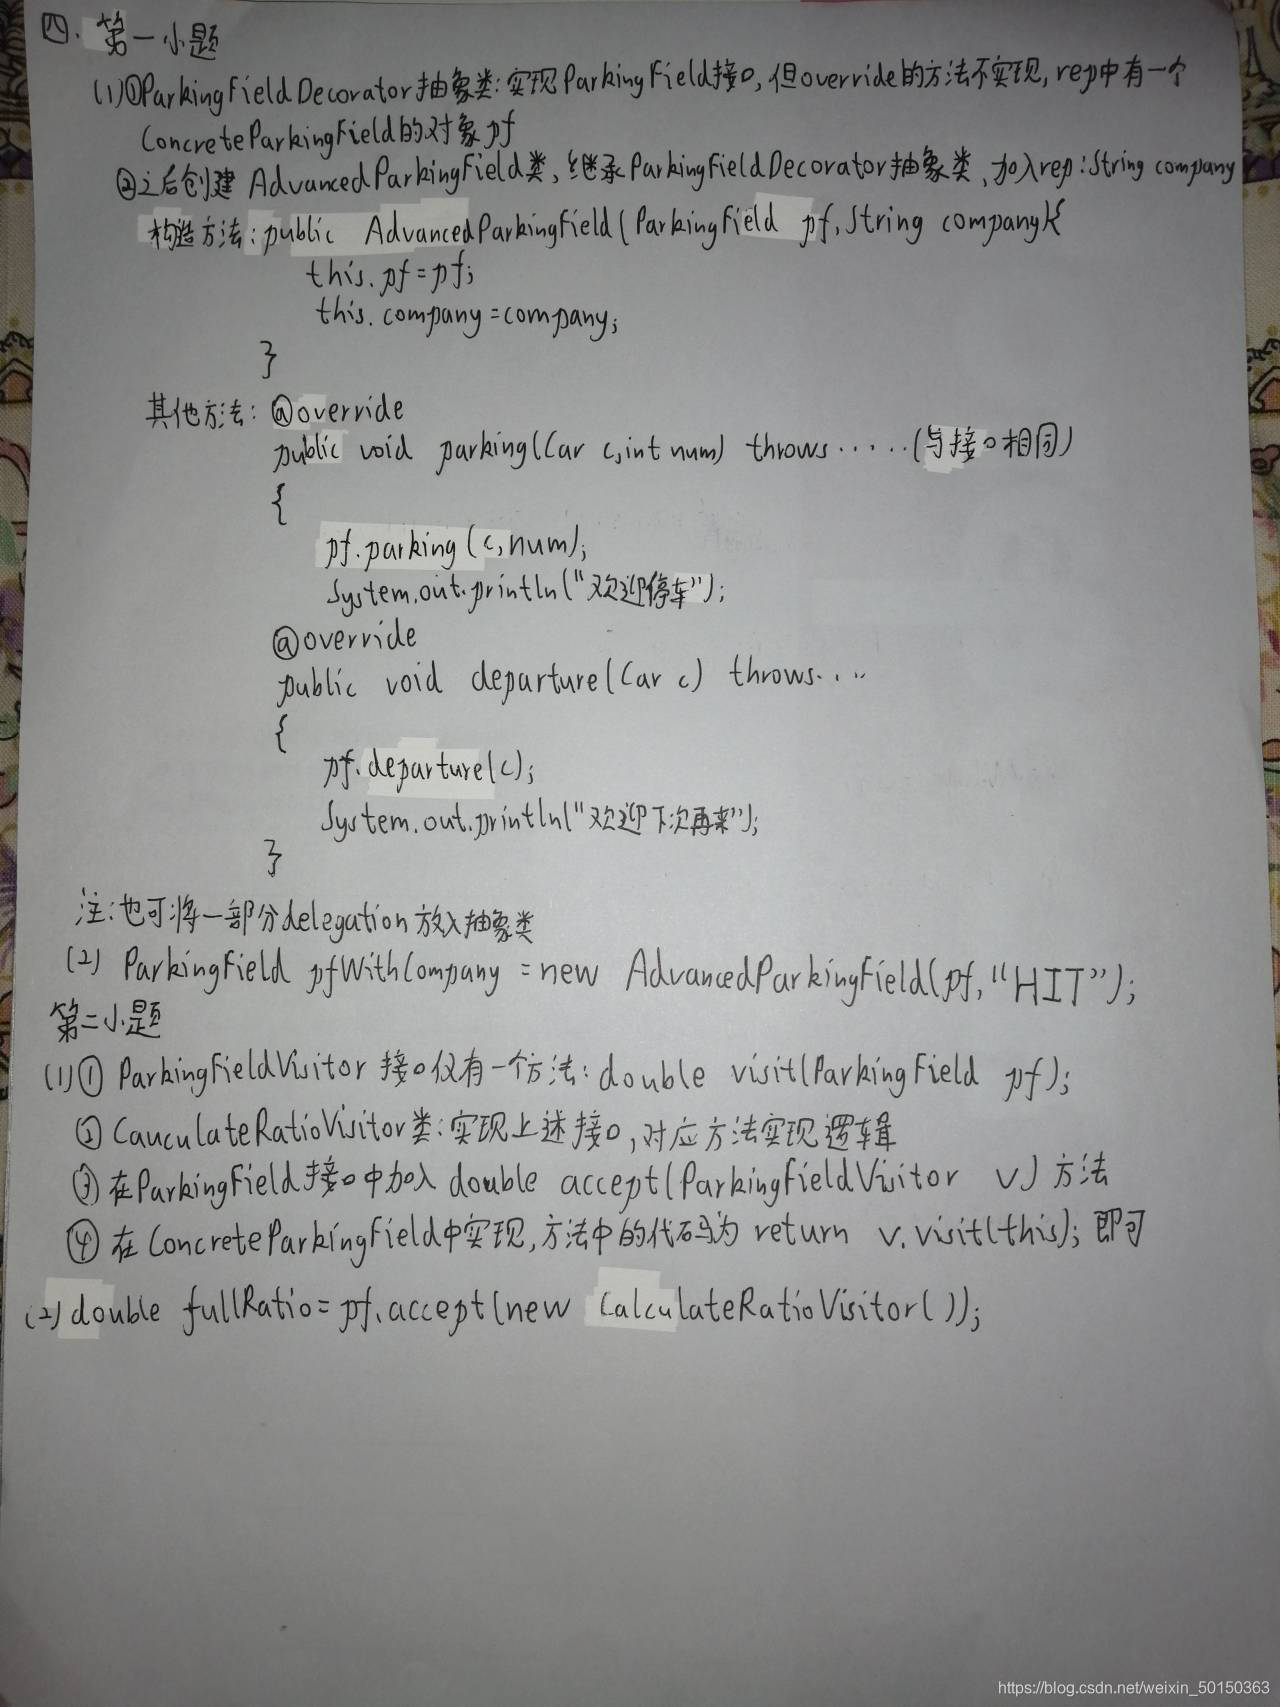 四. 第一小题
(1)①ParkingFieldDecorator抽象类:实现ParkingField接口,但override的方法不实现,rep中有一个
ConcreteParkingField的对象pf
②之后创建 AdvancedParkingField类,继承ParkingFieldDecorator抽象类、加入rep:String company
构造方法:public AdvancedParkingField(ParkingField pf,String company){
this.pf=pf;
this.company=company;
}
其他方法: @override
public void parking(Car c,int num) throws.....(与接口相同)
{
pf.parking(c,num);
System.out.println("欢迎停车");
@override
public void departure(Car c) throws....
{
pf.departure(c);
System.out.println("欢迎下次再来");
}
注:也可将一部分delegation放入抽象类
(2) ParkingField pfWithCompany =new AdvancedParkingField(pf,"HIT");
第二小题
(1)① ParkingFieldVisitor 接口仅有一个方法:double visit(ParkingField pf);
② CauculateRatioVisitor类:实现上述接口,对应方法实现逻辑
③ 在ParkingField接口中加入 double accept(ParkingFieldVisitor v) 方法
④ 在 ConcreteParkingField中实现,方法中的代码为 return v.visit(this);即可
(2)double fullRatio=pf.accept(new CalculateRatioVisitor());
https://blog.csdn.net/weixin_50150363